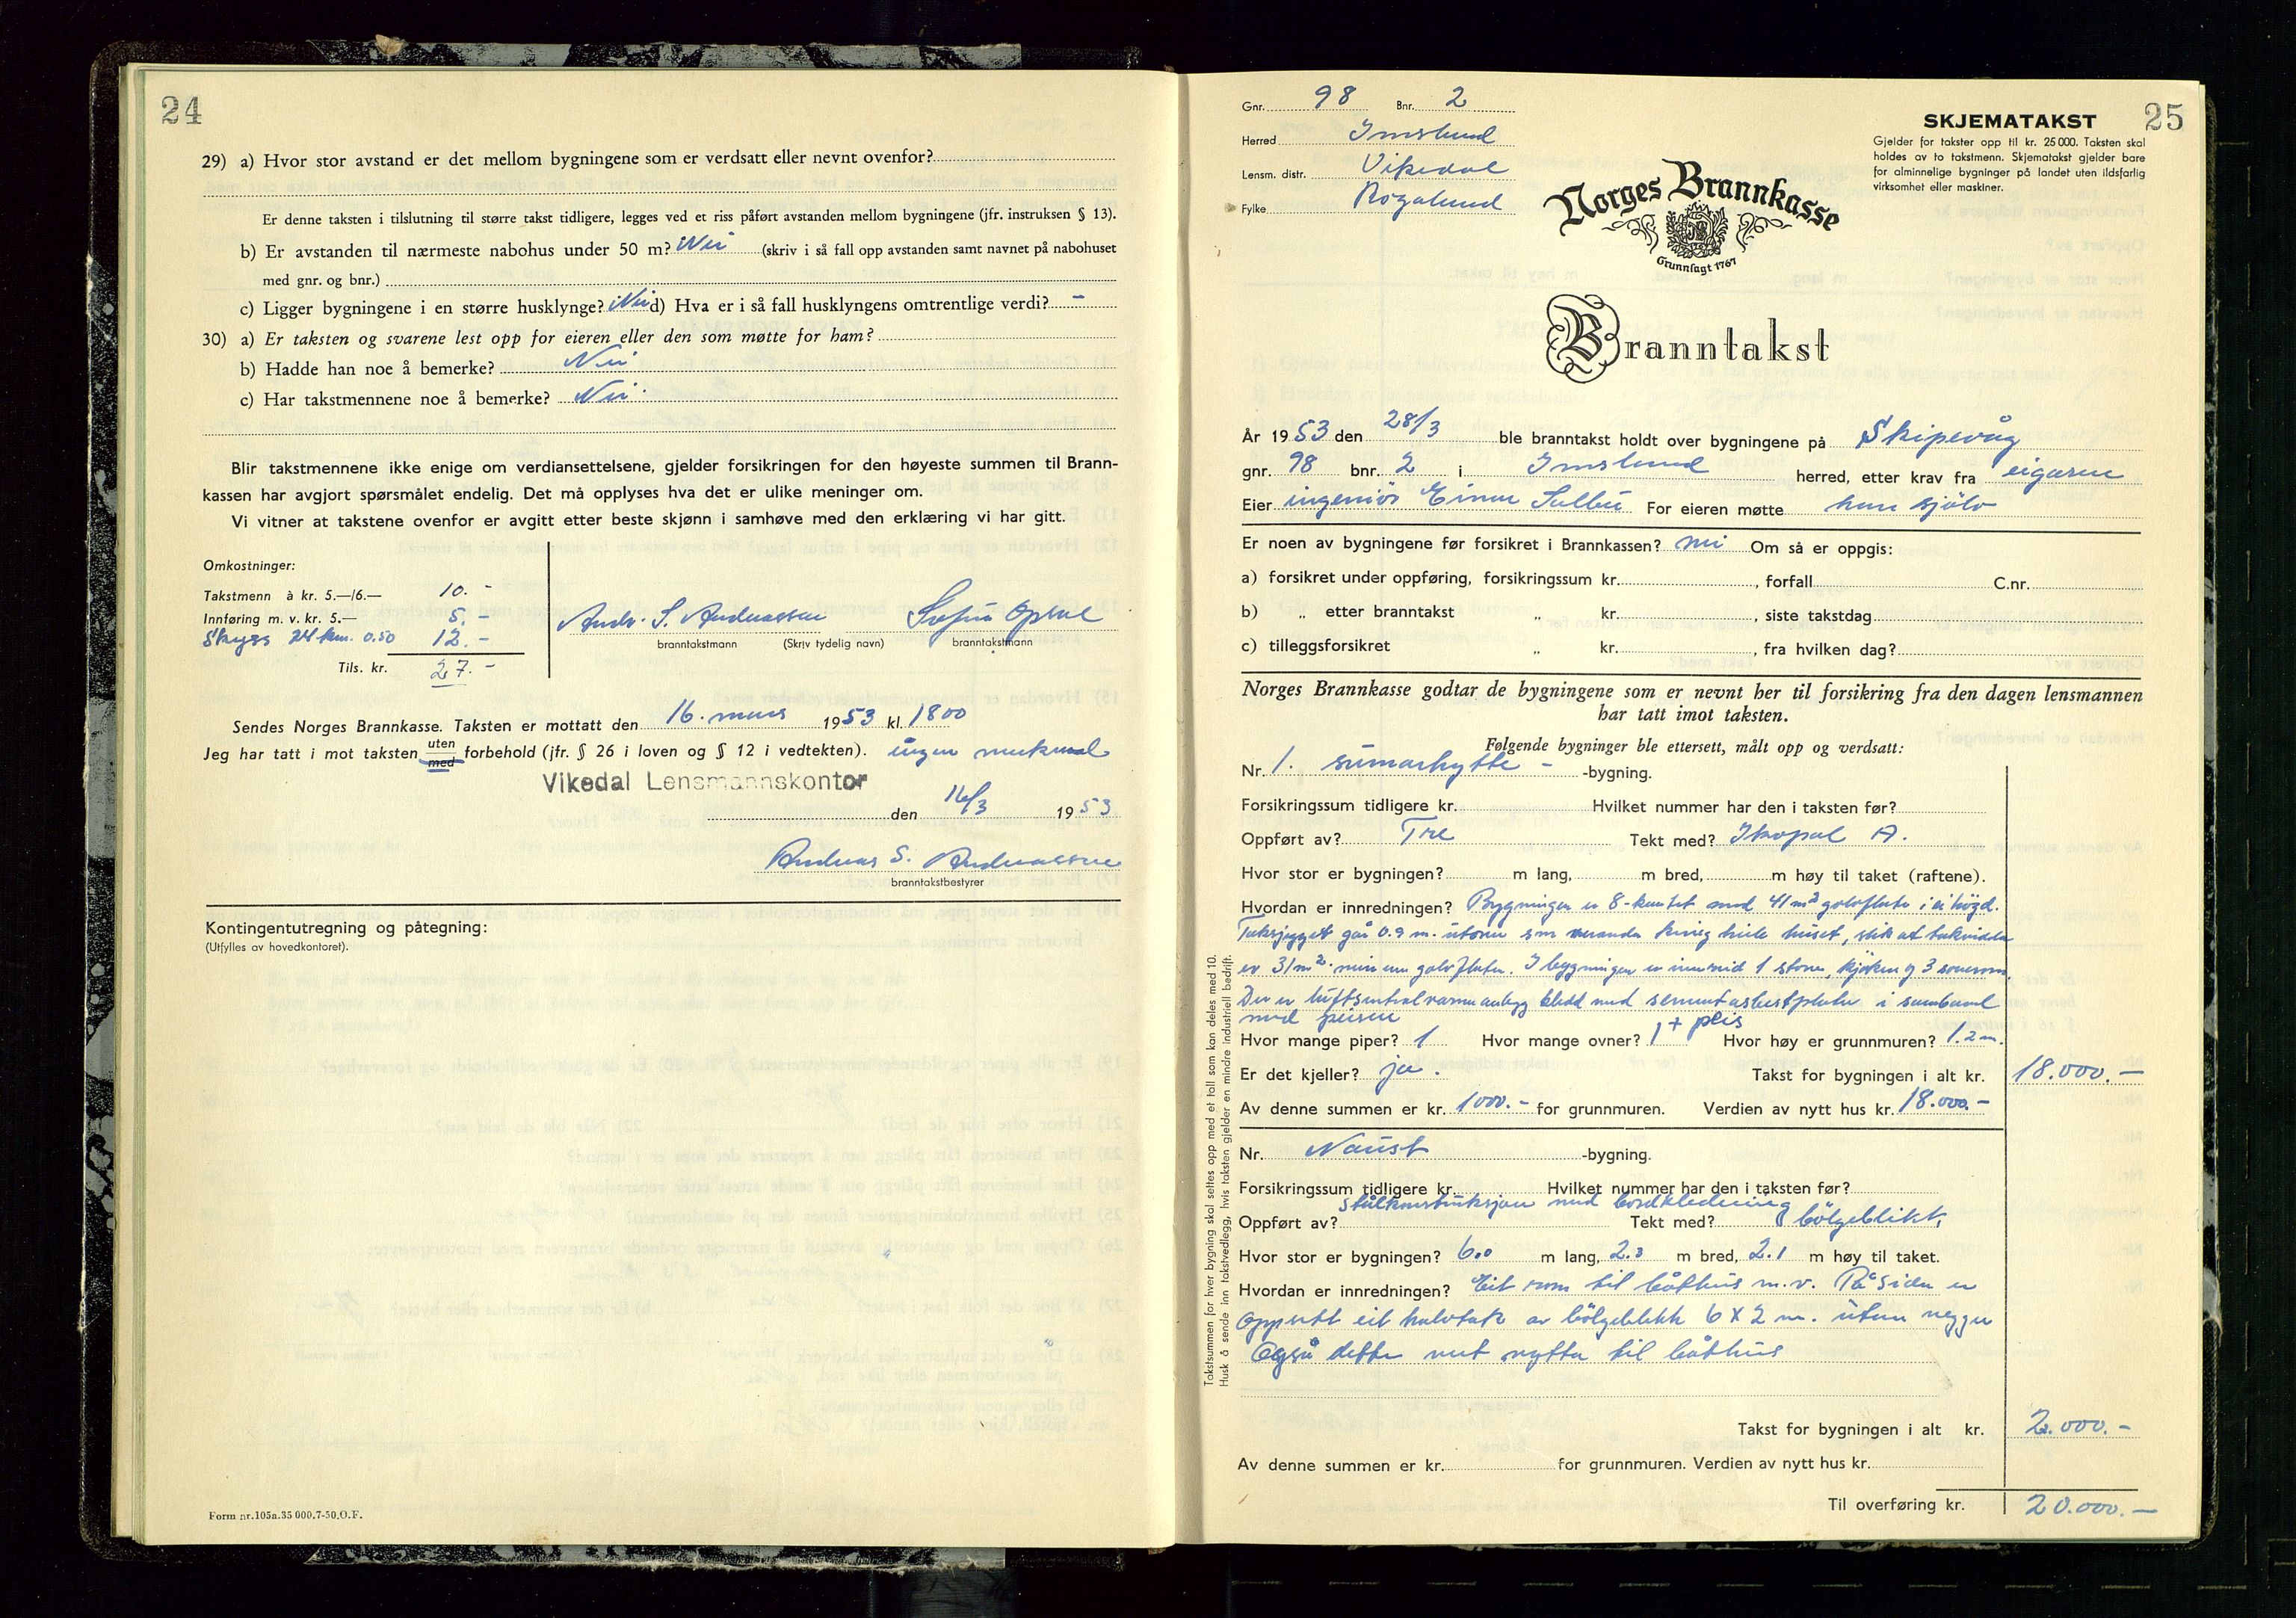 24
29) a) Hvor stor avstand er det mellom bygningene som er verdsatt eller nevnt ovenfor?
Er denne taksten i tilslutning til større takst tidligere, legges ved et riss påført avstanden mellom bygningene (jfr. instruksen § 13).
b) Er avstanden til nærmeste nabohus under 50 m? Nei (skriv i så fall opp avstanden samt navnet på nabohuset
med gnr. og bnr.)
c) Ligger bygningene i en større husklynge? Nei d) Hva er i så fall husklyngens omtrentlige verdi? -
30) a) Er taksten og svarene lest opp for eieren eller den som møtte for ham?
b) Hadde han noe å bemerke? Nei
c) Har takstmennene noe å bemerke? Nei
Blir takstmennene ikke enige om verdiansettelsene, gjelder forsikringen for den høyeste summen til Brann-
kassen har avgjort spørsmålet endelig. Det må opplyses hva det er ulike meninger om.
Vi vitner at takstene ovenfor er avgitt etter beste skjønn i samhøve med den erklæring vi har gitt.
Omkostninger:
Takstmenn à kr. 5.—/6.— 10.-
Innføring m. v. kr. 5.— 5.-
Skyss 24 km. 0.50 12.-
Tils. kr. 27.-
Andr. S. Andreassen Opsal
branntakstmann (Skriv tydelig navn) branntakstmann
Sendes Norges Brannkasse. Taksten er mottatt den 16. mars 1953 kl. 1800
Jeg har tatt i mot taksten uten med forbehold (jfr. § 26 i loven og § 12 i vedtekten). ingen merknad
Vikedal Lensmannskontor
den 16/3 1953
Andreas S. Andreassen
branntakstbestyrer
Kontingentutregning og påtegning:
(Utfylles av hovedkontoret).
Form nr. 105a. 35 000. 7-50. O. F.
25
Gnr. 98 Bnr. 2
Herred Imsland
Lensm. distr. Vikedal
Fylke Rogaland
SKJEMATAKST
Gjelder for takster opp til kr. 25 000. Taksten skal
holdes av to takstmenn. Skjematakst gjelder bare
for alminnelige bygninger på landet uten ildsfarlig
virksomhet eller maskiner.
Norges Brannkasse
Grunnlagt 1767
Branntakst
År 1953 den 28/3 ble branntakst holdt over bygningene på Skipevåg
gnr. 98 bnr. 2 i Imsland herred, etter krav fra eigaren
Eier ingeniör Einar Sellei For eieren møtte han sjölv
Er noen av bygningene før forsikret i Brannkassen? nei Om så er oppgis:
a) forsikret under oppføring, forsikringssum kr. , forfall C.nr.
b) „ etter branntakst „ kr. , siste takstdag
c) tilleggsforsikret „ kr. , fra hvilken dag?
Norges Brannkasse godtar de bygningene som er nevnt her til forsikring fra den dagen lensmannen
har tatt imot taksten.
Følgende bygninger ble ettersett, målt opp og verdsatt:
Nr. 1. sumarhytte - -bygning.
Forsikringssum tidligere kr. Hvilket nummer har den i taksten før?
Oppført av? Tre Tekt med? Ikopal A.
Hvor stor er bygningen? m lang, m bred, m høy til taket (raftene).
Hvordan er innredningen? Bygningen er 8-kantet med 41 m² golvflate i ei högd.
Takskjegget går 0.9 m. utover som veranda kring heile huset, slik at takvidda
er 31 m² meir enn golvflaten. I bygningen er innreid 1 stove, kjöken og 3 soverom.
Der er luftsentralvarmanlegg kledd med sementasbestplater i samband
med peisen
Hvor mange piper? 1 Hvor mange ovner? 1 + peis Hvor høy er grunnmuren? 1.2 m.
Er det kjeller? ja. Takst for bygningen i alt kr. 18.000.—
Av denne summen er kr. 1000.- for grunnmuren. Verdien av nytt hus kr. 18.000.-
Nr. Naust -bygning.
Forsikringssum tidligere kr. Hvilket nummer har den i taksten før?
Oppført av? Stålkonstruksjon med bordkledning Tekt med? bölgeblikk,
Hvor stor er bygningen? 6.0 m lang, 2.3 m bred, 2.1 m høy til taket.
Hvordan er innredningen? Eit rom til båthus m.v. På sida er
oppsatt eit halvtak av bölgeblikk 6 X 2 m. uten vegger
Også dette vert nytta til båthus
Takst for bygningen i alt kr. 2.000.-
Av denne summen er kr. for grunnmuren. Verdien av nytt hus kr.
Til overføring kr. 20.000.—
Takstsummen for hver bygning skal settes opp med et tall som kan deles med 10.
Husk å sende inn takstvedlegg, hvis taksten gjelder en mindre industriell bedrift.